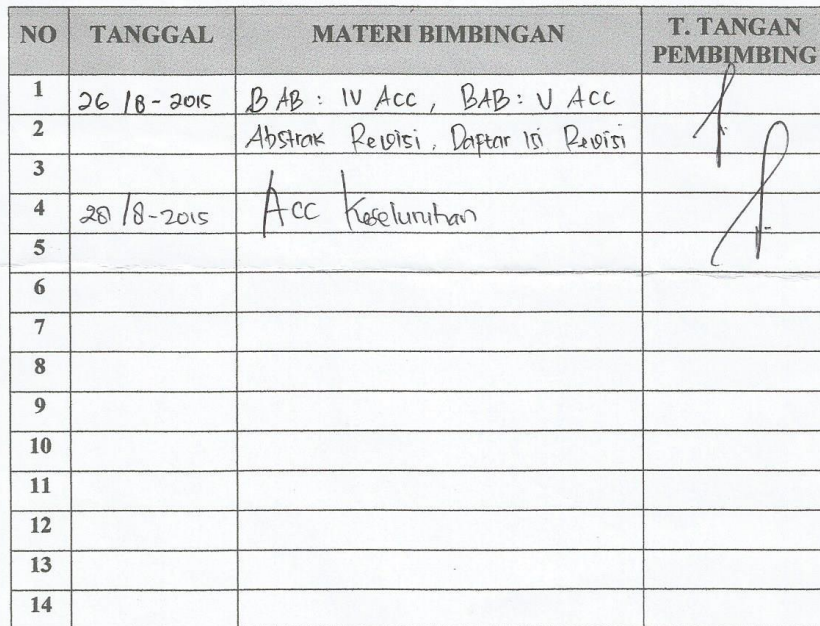 NO TANGGAL MATERI BIMBINGAN T. TANGAN PEMBIMBING
1 26/8-2015 BAB : IV Acc, BAB : V Acc
2 Abstrak Revisi, Daftar Isi Revisi
3
4 28/8-2015 Acc Keseluruhan
5
6
7
8
9
10
11
12
13
14